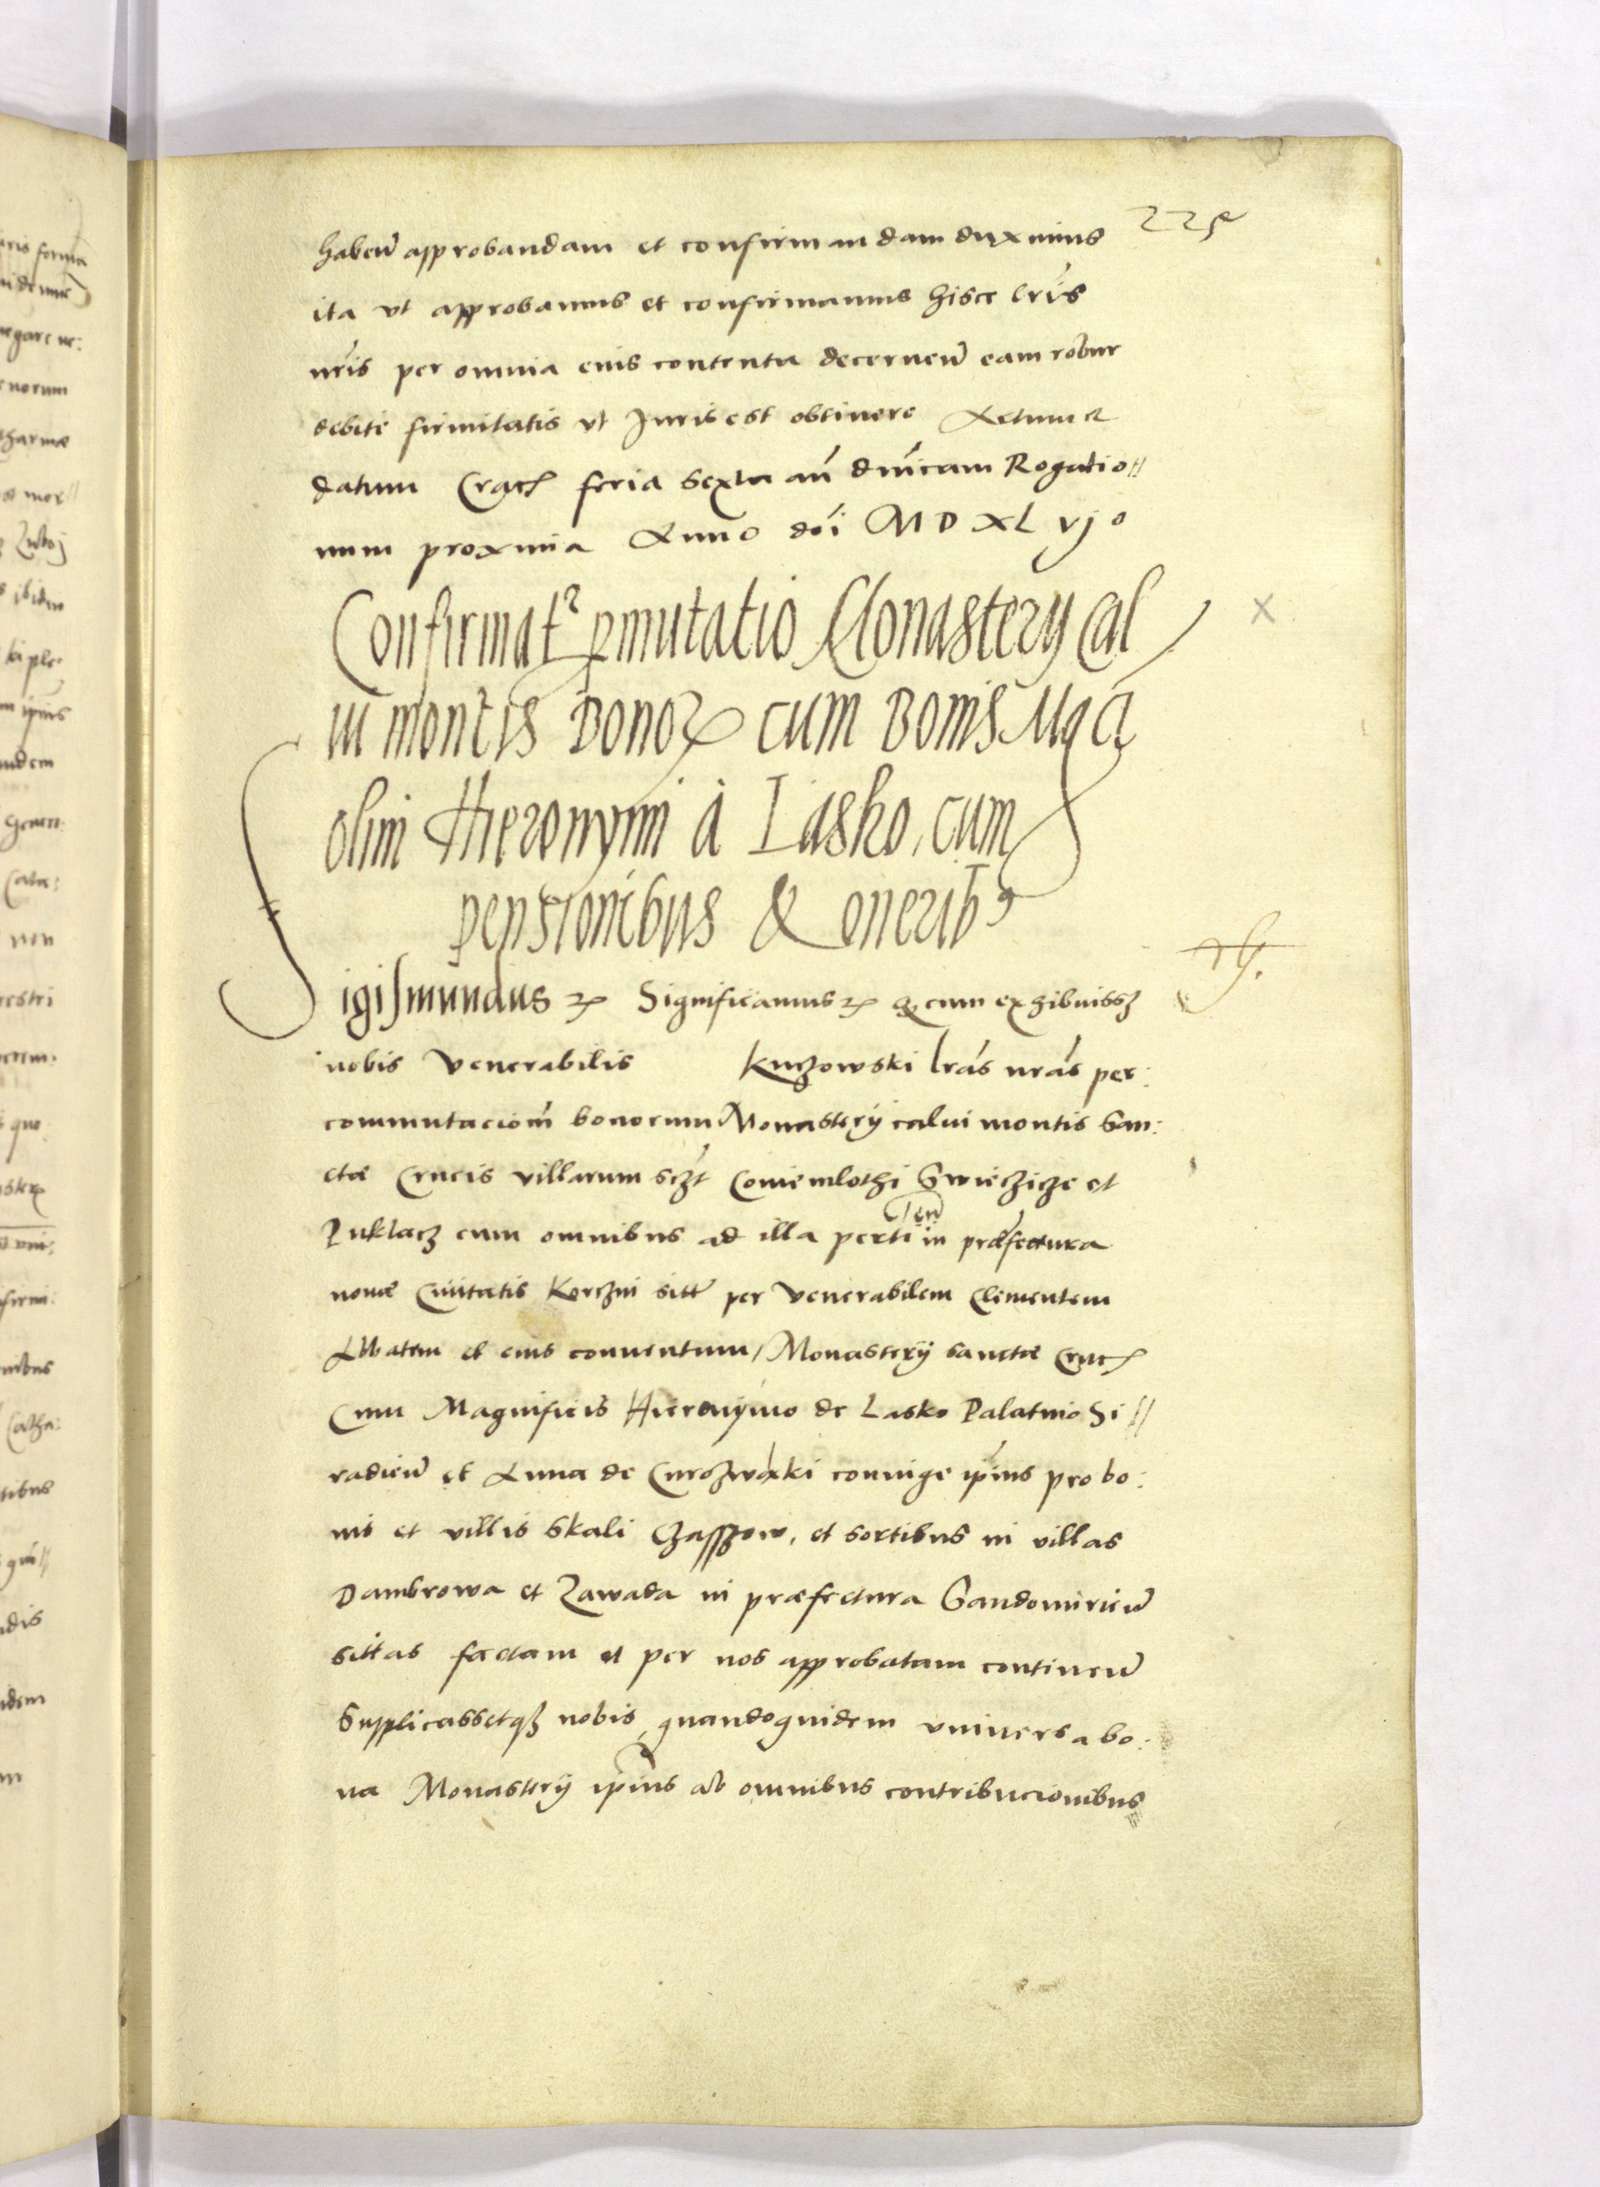 225
habeñ approbandam et confirmandam duximus
ita vt approbamus et confirmamus hisce lrĩs
nrĩs per omnia eius contenta decerneñ eam robur
debite firmitatis vt Juris est obtinere Actum et
datum Crac feria sexta añ dnĩcam Rogatio//
num proxima Anno doĩ M D XL vj o
Confirmatr pmutatio Monastery Cal
ui montis Bonorꝝ cum Bonis Mgci
olim Hieronymi à Lasko, cum
pensionibus & oneribꝰ
Sigismundus ꝛc Significamus ꝛc Q cum exhibuissꝫ
nobis Venerabilis Kuczowski lrãs nrãs per:
commutacioñ bonorum Monasterÿ calui montis San:
ctæ Crucis villarum sczt Coniemlothi Swieczicze et
Zuklacz cum omnibus ad illa pertineñ in præfectura
nouæ Ciuitatis Korczin sitt per Venerabilem Clementem
Abbatem et eius conuentum Monasterÿ sanctæ Cruc
Cum Magnificis Hieronymo de Lasko Palatino Si//
radieñ et Anna de Curozwaki coniuge ipĩus pro bo:
nis et villis Skali Czasszow, et sortibus in villas
Dambrowa et Zawada in præfectura Sandomirieñ
sittas factam et per nos approbatam contineñ
Supplicassetqꝫ nobis, quandoquidem vniuersa bo:
na Monasterÿ ipĩus ab omnibus contribucionibus